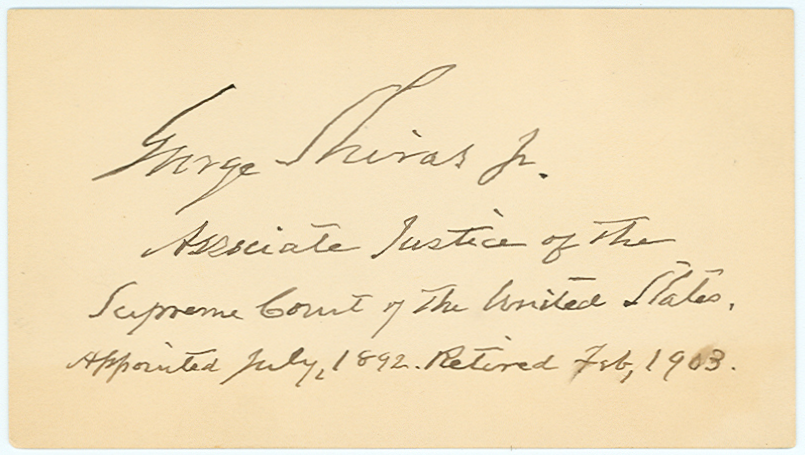 George Shiras Jr.
Associate Justice of the
Supreme Court of the United States.
Appointed July, 1892. Retired Feb, 1903.